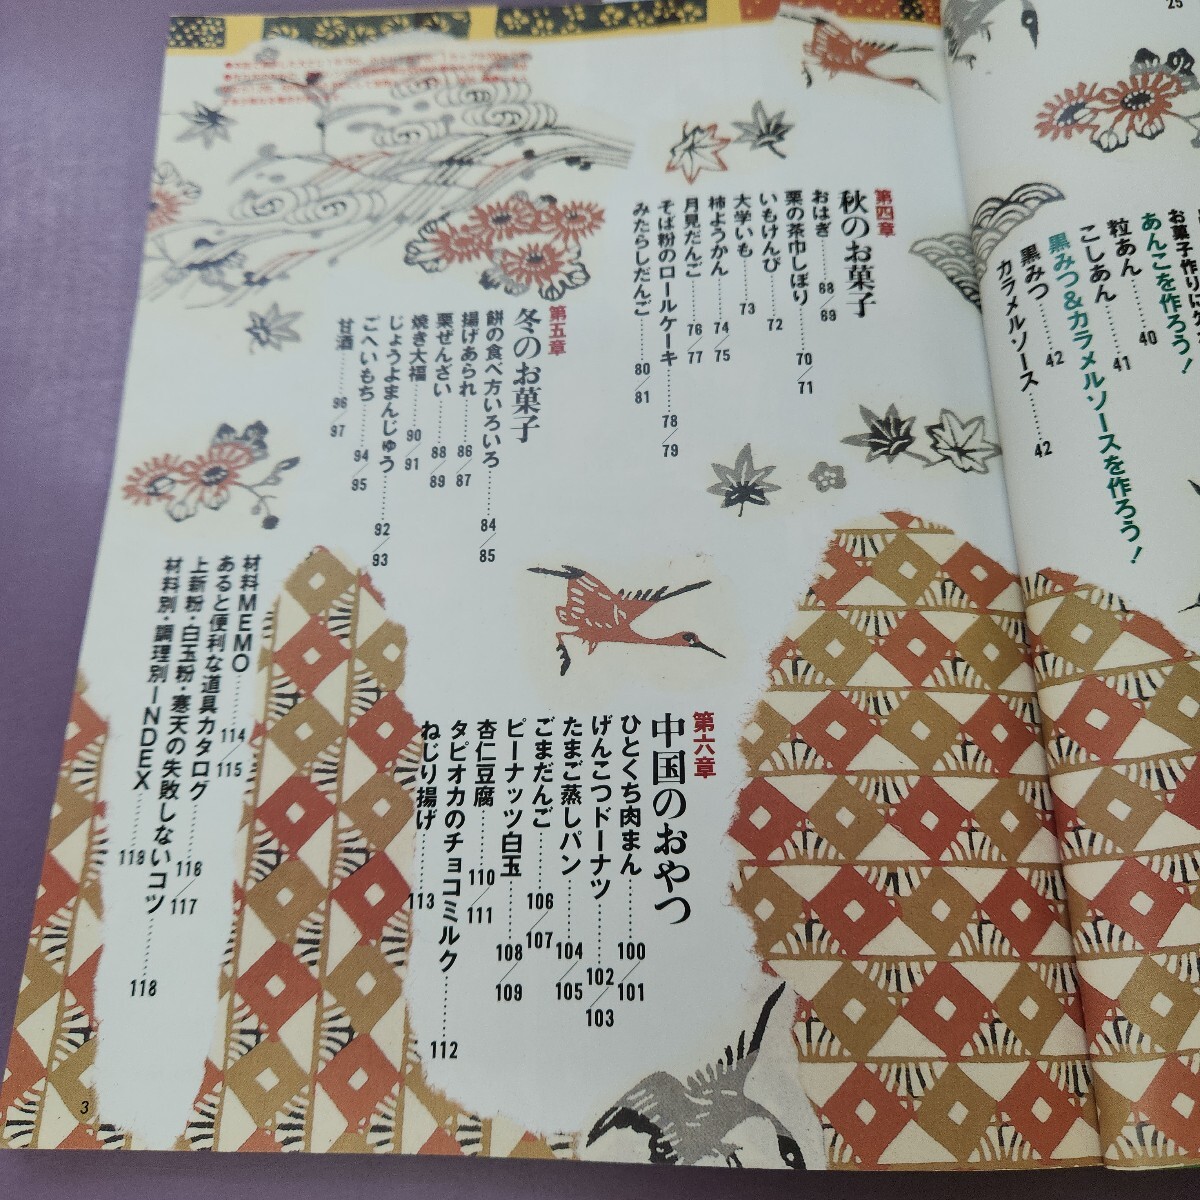 お菓子作りに
あんこを作ろう！
粒あん……40
こしあん……41
黒みつ＆カラメルソースを作ろう！
黒みつ……42
カラメルソース……42
25
第四章
秋のお菓子
おはぎ……68／69
栗の茶巾しぼり……70／71
いもけんぴ……72
大学いも……73
柿ようかん……74／75
月見だんご……76／77
そば粉のロールケーキ……78／79
みたらしだんご……80／81
第五章
冬のお菓子
餅の食べ方いろいろ……84／85
揚げあられ……86／87
栗ぜんざい……88／89
焼き大福……90／91
じょうよまんじゅう……92／93
ごへいもち……94／95
甘酒……96／97
第六章
中国のおやつ
ひとくち肉まん……100／101
げんこつドーナツ……102／103
たまご蒸しパン……104／105
ごまだんご……106／107
ピーナッツ白玉……108／109
杏仁豆腐……110／111
タピオカのチョコミルク……112
ねじり揚げ……113
材料MEMO……114／115
あると便利な道具カタログ……116／117
上新粉・白玉粉・寒天の失敗しないコツ……118
材料別・調理別INDEX……119
3